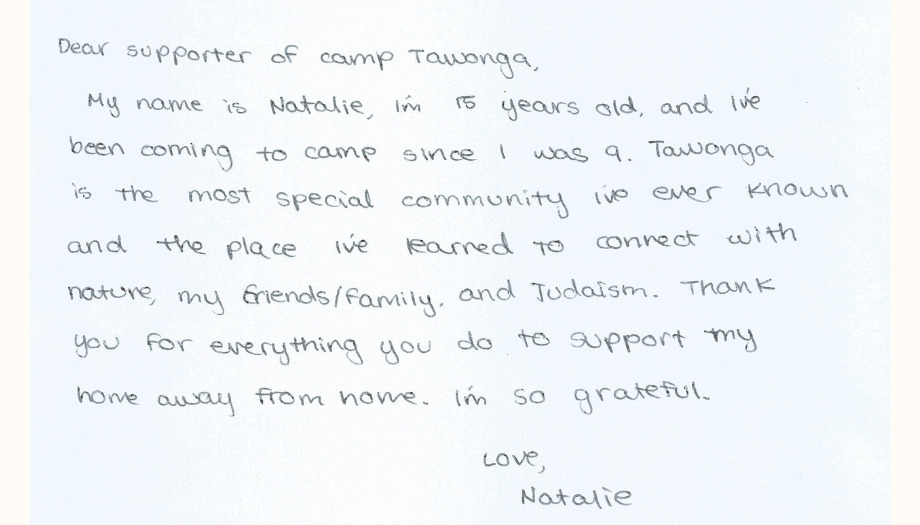 Dear supporter of camp Tawonga,
My name is Natalie, I'm 15 years old, and I've
been coming to camp since I was 9. Tawonga
is the most special community i've ever known
and the place i've learned to connect with
nature, my friends/family, and Judaism. Thank
you for everything you do to support my
home away from home. I'm so grateful.
Love,
Natalie